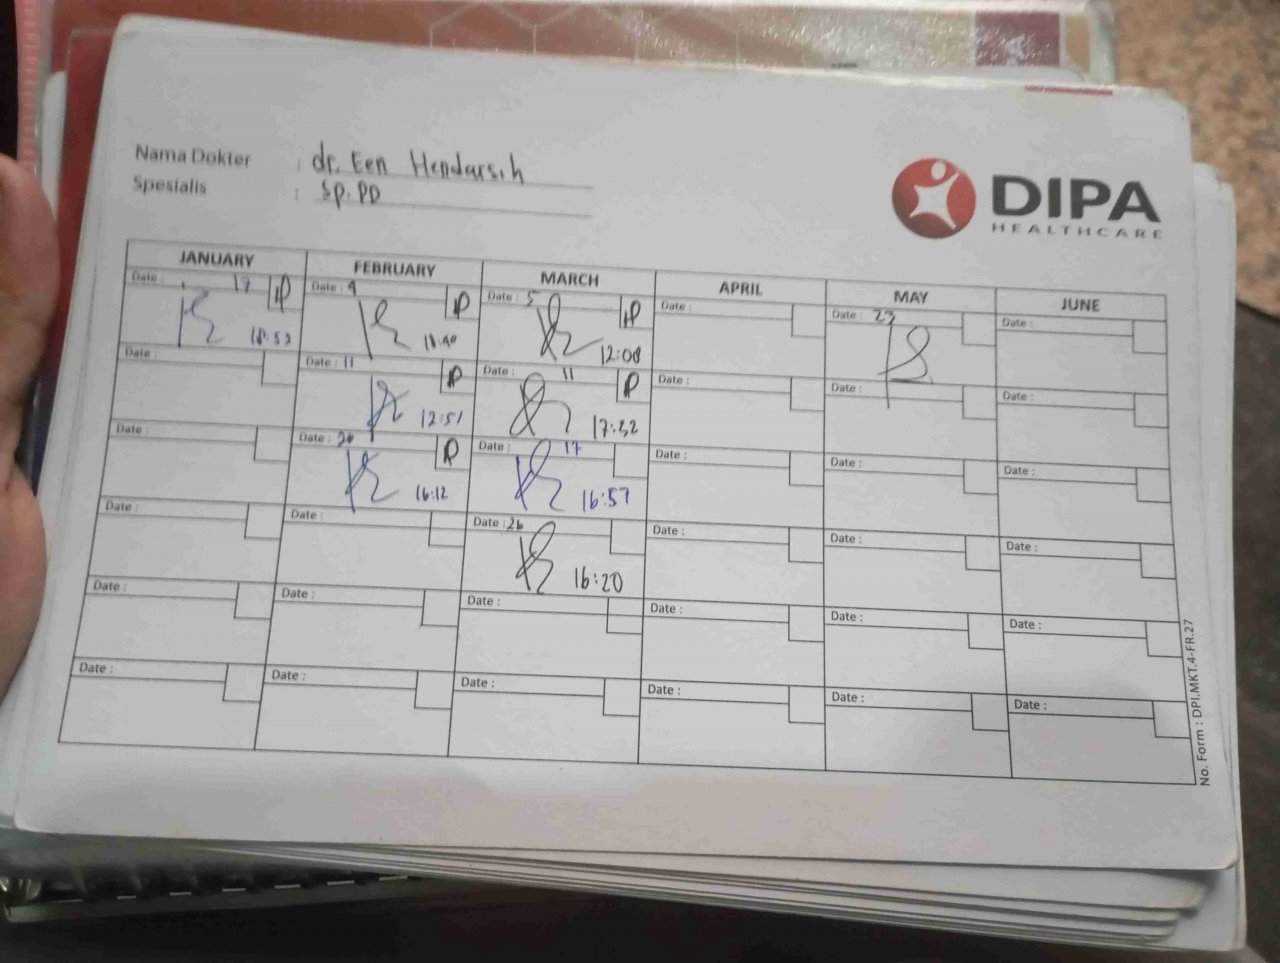 Nama Dokter : dr. Een Hendarsih
Spesialis : Sp. PD
DIPA
HEALTHCARE
JANUARY FEBRUARY MARCH APRIL MAY JUNE
Date : 17 Date : 4 Date : 5 Date : Date : 23 Date :
18:53 12:08
Date : Date : 11 Date : 11 Date : Date : Date :
12:51 17:22
Date : Date : 20 Date : 17 Date : Date : Date :
16:12 16:57
Date : Date : Date : 26 Date : Date : Date :
16:20
Date : Date : Date : Date : Date : Date :
Date : Date : Date : Date : Date : Date :
No. Form : DPI.MKT.4-FR.27